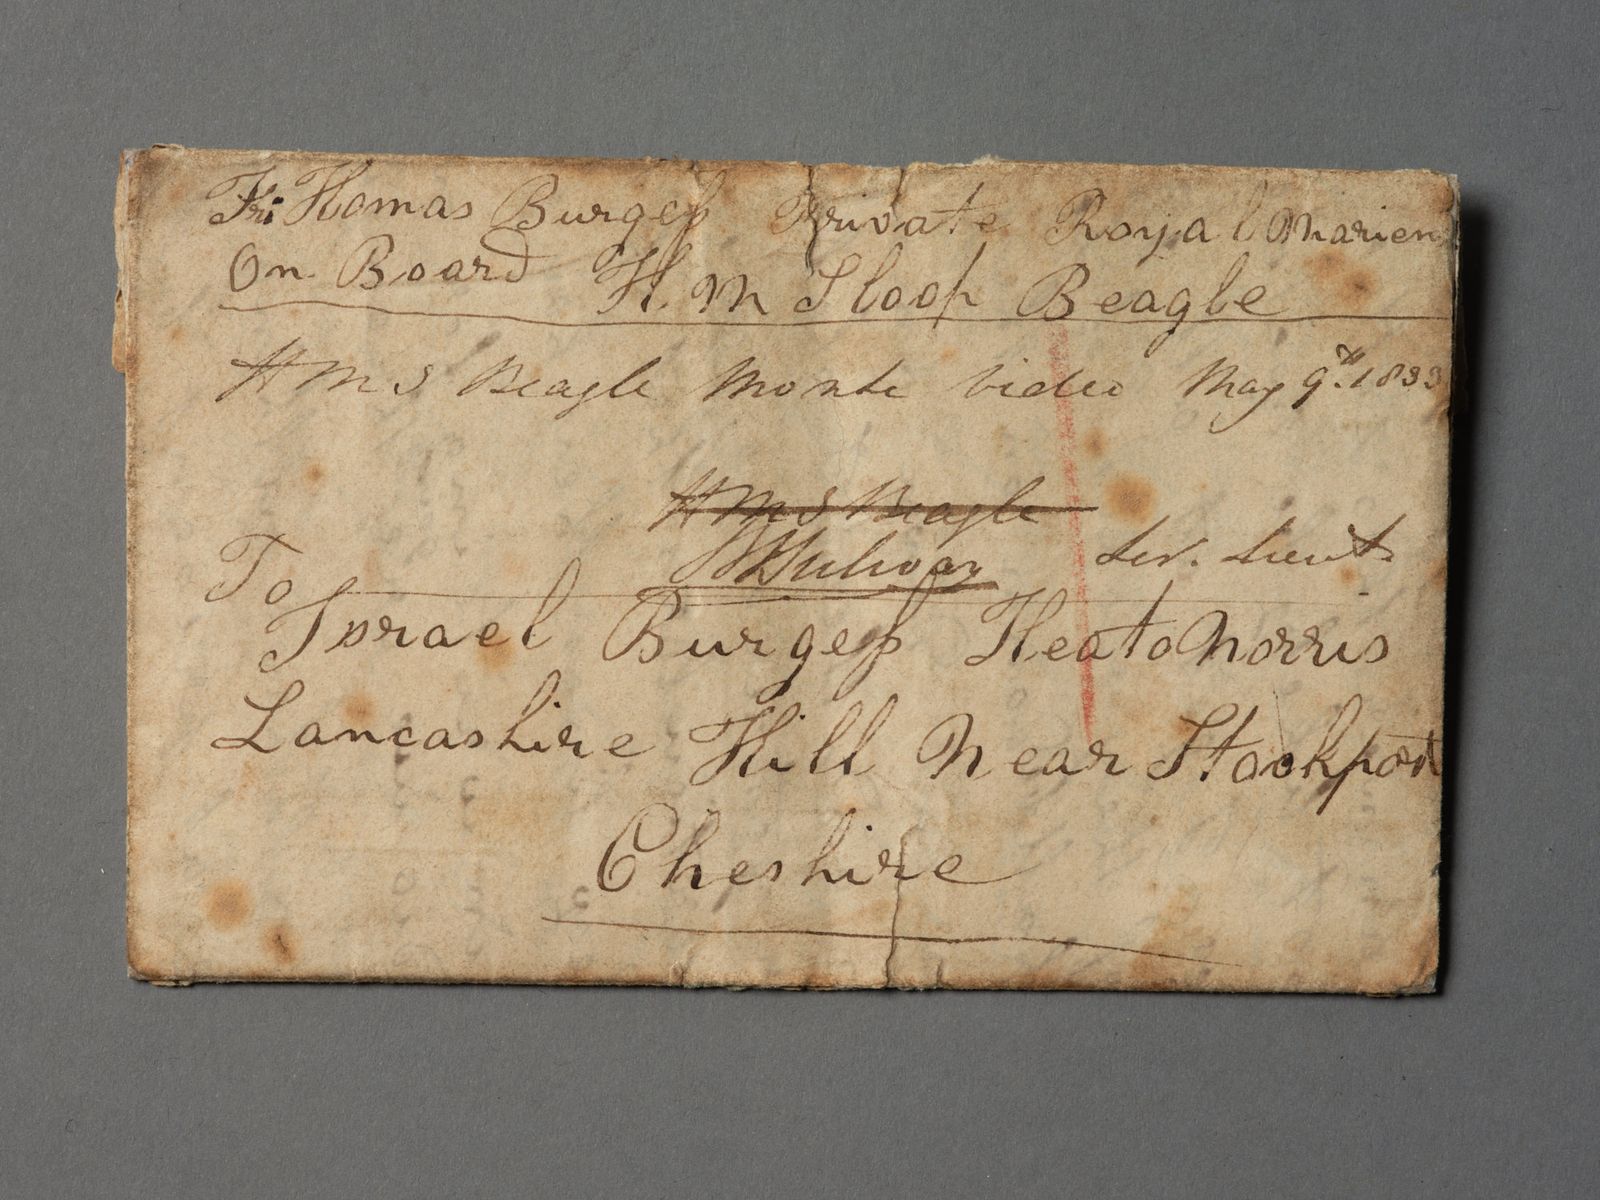 Fr: Thomas Burgess Private Royal Marien
On Board H.M Sloop Beagle
HMS Beagle Monte Video May 9th. 1833
HMS Beagle
BJSulivan Sen. Lieut
To
Israel Burgess Heato Norris
Lancashire Hill Near Stockport
Cheshire